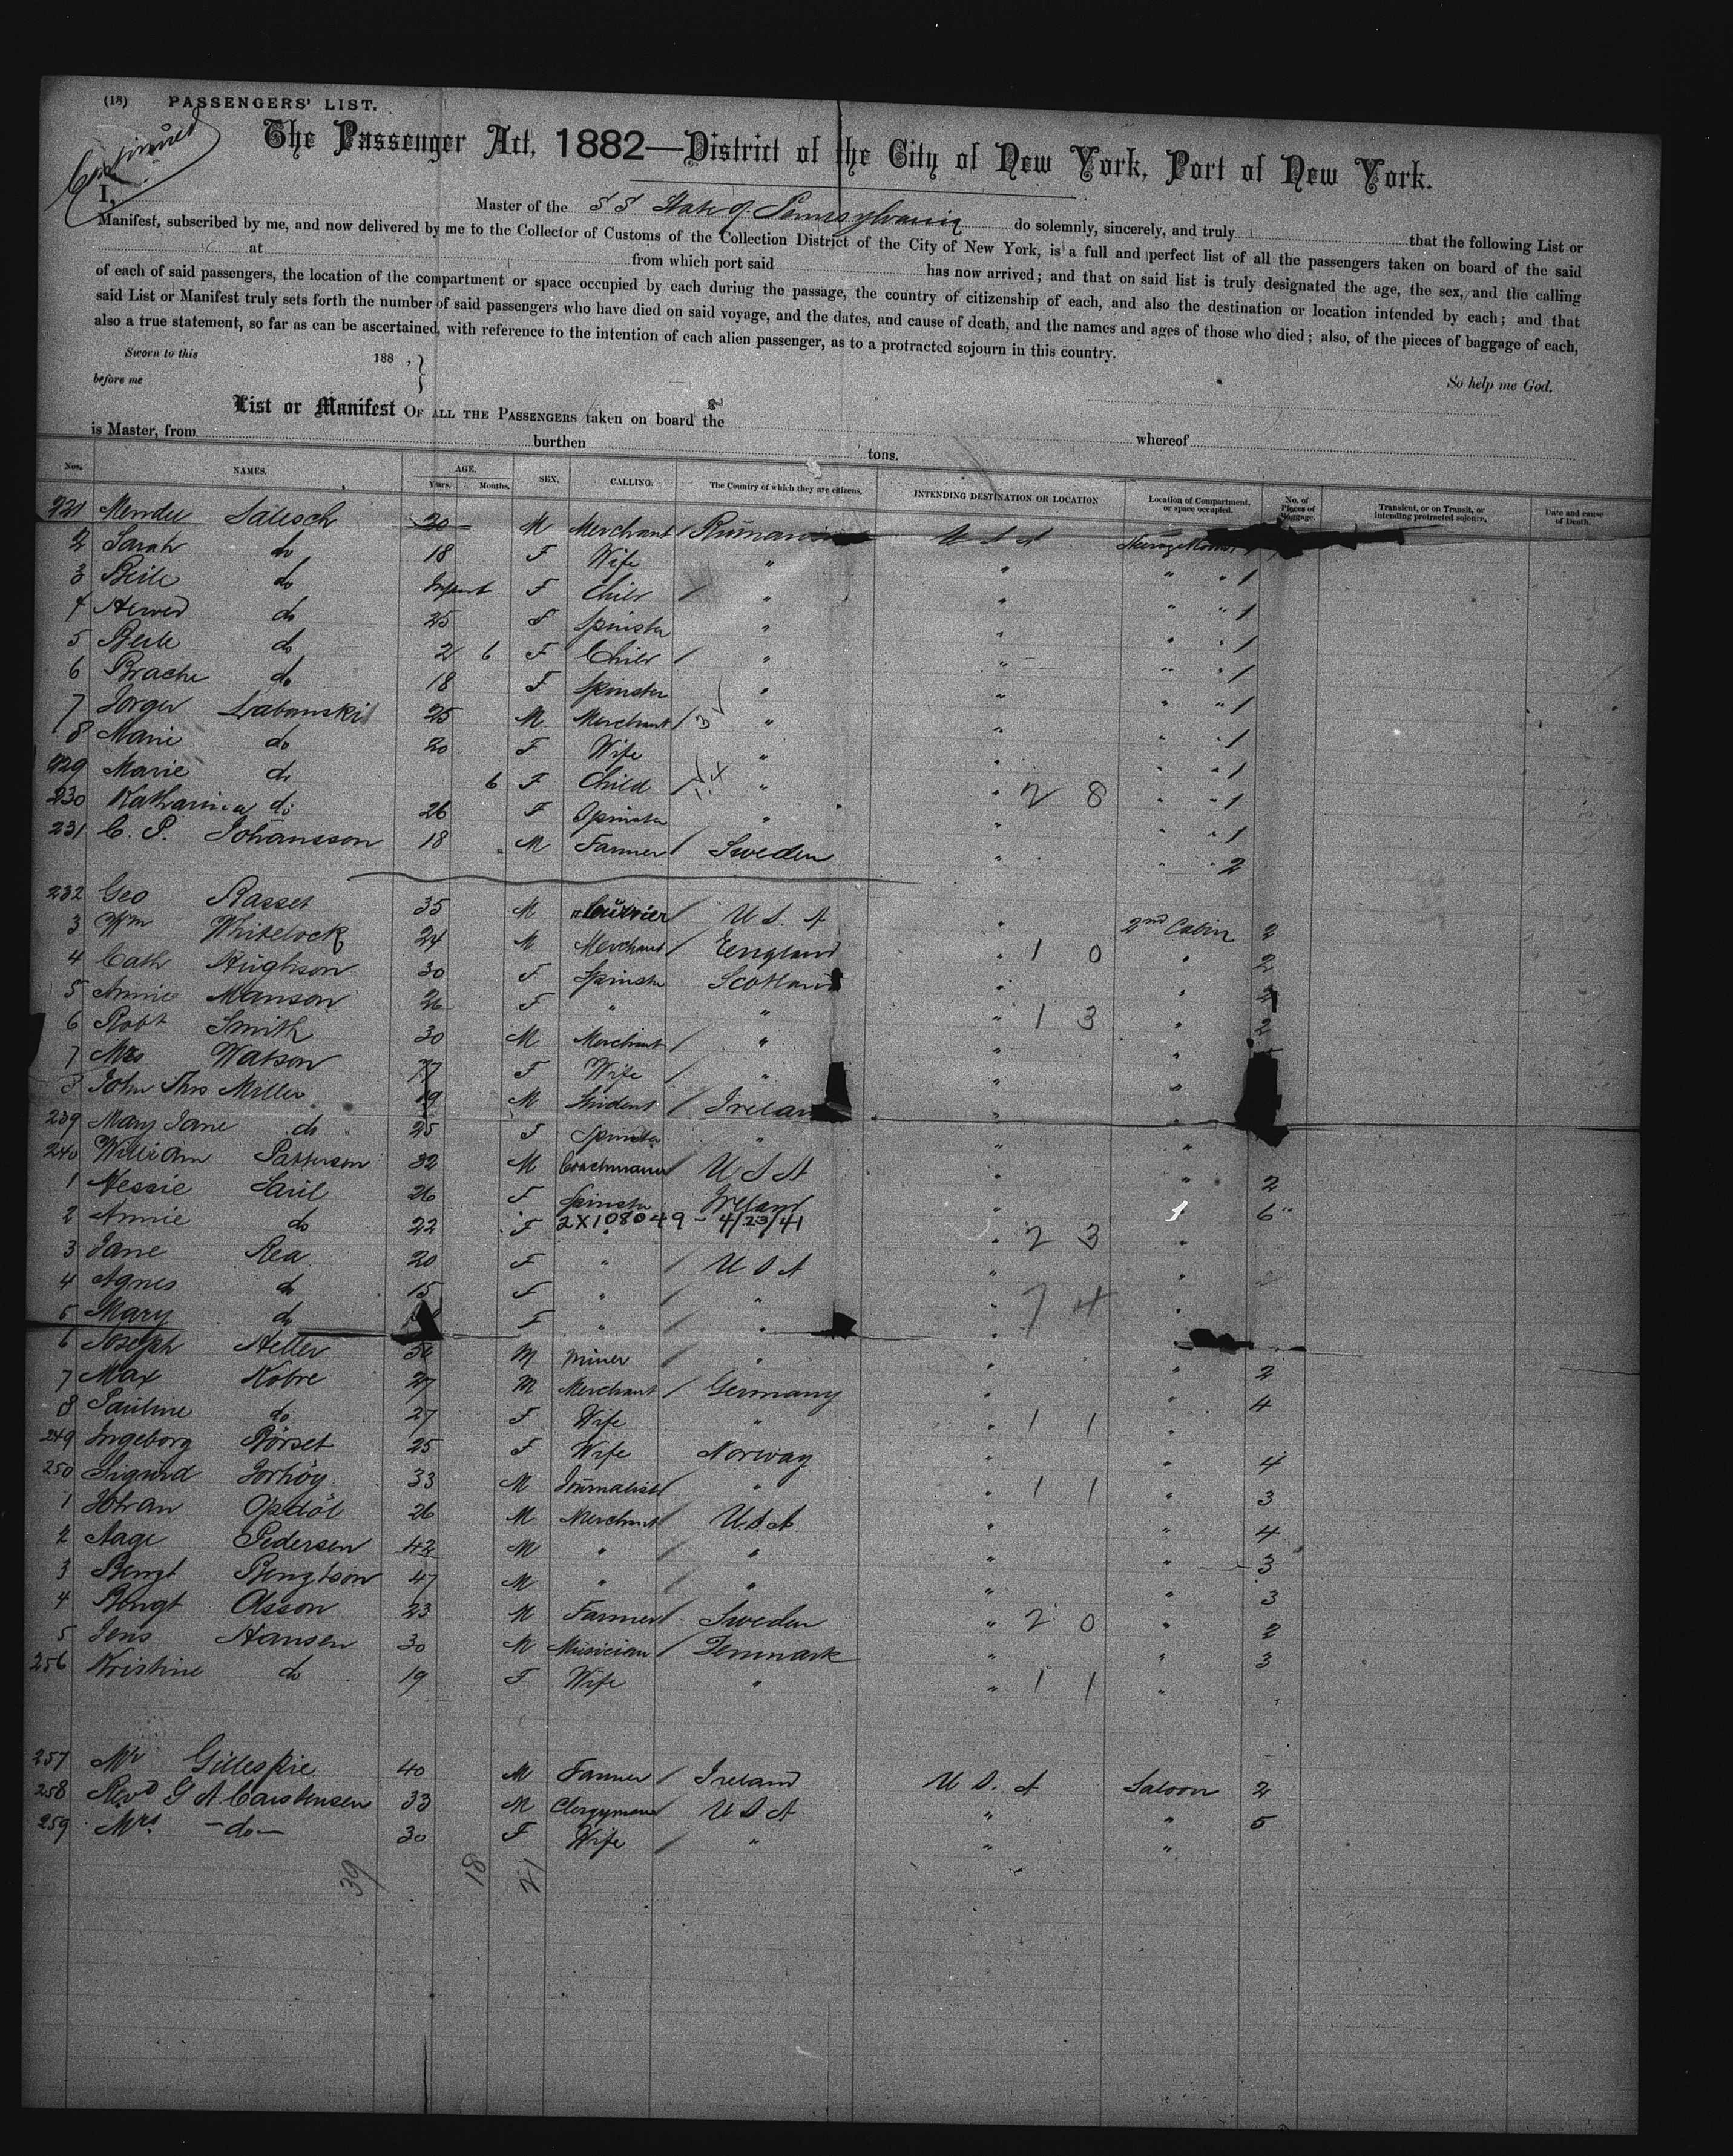 (18) PASSENGERS' LIST.
Continued
The Passenger Act, 1882—District of the City of New York, Port of New York.
I, Master of the S S State of Pennsylvania do solemnly, sincerely, and truly that the following List or
Manifest, subscribed by me, and now delivered by me to the Collector of Customs of the Collection District of the City of New York, is a full and perfect list of all the passengers taken on board of the said
at from which port said has now arrived; and that on said list is truly designated the age, the sex, and the calling
of each of said passengers, the location of the compartment or space occupied by each during the passage, the country of citizenship of each, and also the destination or location intended by each; and that
said List or Manifest truly sets forth the number of said passengers who have died on said voyage, and the dates, and cause of death, and the names and ages of those who died; also, of the pieces of baggage of each,
also a true statement, so far as can be ascertained, with reference to the intention of each alien passenger, as to a protracted sojourn in this country.
So help me God.
Sworn to this 188 ,
before me
List or Manifest OF ALL THE PASSENGERS taken on board the whereof
is Master, from burthen tons.
Nos. NAMES. AGE. Years. Months. SEX. CALLING. The Country of which they are citizens. INTENDING DESTINATION OR LOCATION Location of Compartment, or space occupied. No. of Pieces of Baggage. Transient, or on Transit, or intending protracted sojourn. Date and cause of Death.
221 20 M Merchant U S A
2 Sarah do 18 F Wife " " " " 1
3 Beile do Infant F Child " " " " 1
4 do 25 F Spinster " " " " 1
5 Beile do 2 6 F Child " " " " 1
6 Brache do 18 F Spinster " " " " 1
7 Labanski 25 M Merchant 3 " " " " 1
8 Marie do 20 F Wife " " " " 1
229 Marie do 6 F Child " " 2 8 " " 1
230 Katharina do 26 F Spinster " " " " 1
231 C. P. Johansson 18 M Farmer Sweden " " " 2
232 Geo Rasset 35 M U. S. A " 2nd Cabin 2
3 Wm Whitelock 24 M Merchant England " 1 0 " 2
4 Cath Hughson 30 F Spinster Scotland " "
5 Annie Manson 26 F " " " 1 3 " 2
6 Robt Smith 30 M Merchant " " "
7 Mrs Watson 77 F Wife " " "
8 John Thos Miller 19 M Student Ireland " "
239 Mary Jane do 25 F Spinster " " "
240 William Patterson 32 M Coachman U S A " " 2
1 26 F Spinster Ireland " 6 "
2 Annie do 22 F 2X108049 - 4/23/41 " 2 3 "
3 Jane Rea 20 F " U S A " "
4 Agnes do 15 F " " " 7 4 "
5 Mary do F " " "
6 Joseph Heller M Miner " " " 2
7 Max Kobre 27 M Merchant Germany " " 4
8 Pauline do 27 F Wife " " 1 1 "
249 Ingeborg Rörset 25 F Wife Norway " " 4
250 Sigurd 33 M Journalist " " 1 1 " 3
1 26 M Merchant U.S.A " " 4
2 Aage Pedersen 42 M " " " " 3
3 Bengt Bengtson 47 M " " " " 3
4 Bengt Olsson 23 M Farmer Sweden " 2 0 " 2
5 Jens Hansen 30 M Musician Denmark " " 3
256 Kristine do 19 F Wife " " 1 1 "
257 Mr Gillespie 40 M Farmer Ireland U S. A Saloon 2
258 Revd G A Carstensen 33 M Clergyman U S A " " 5
259 Mrs -do- 30 F Wife " " "
39 18 21